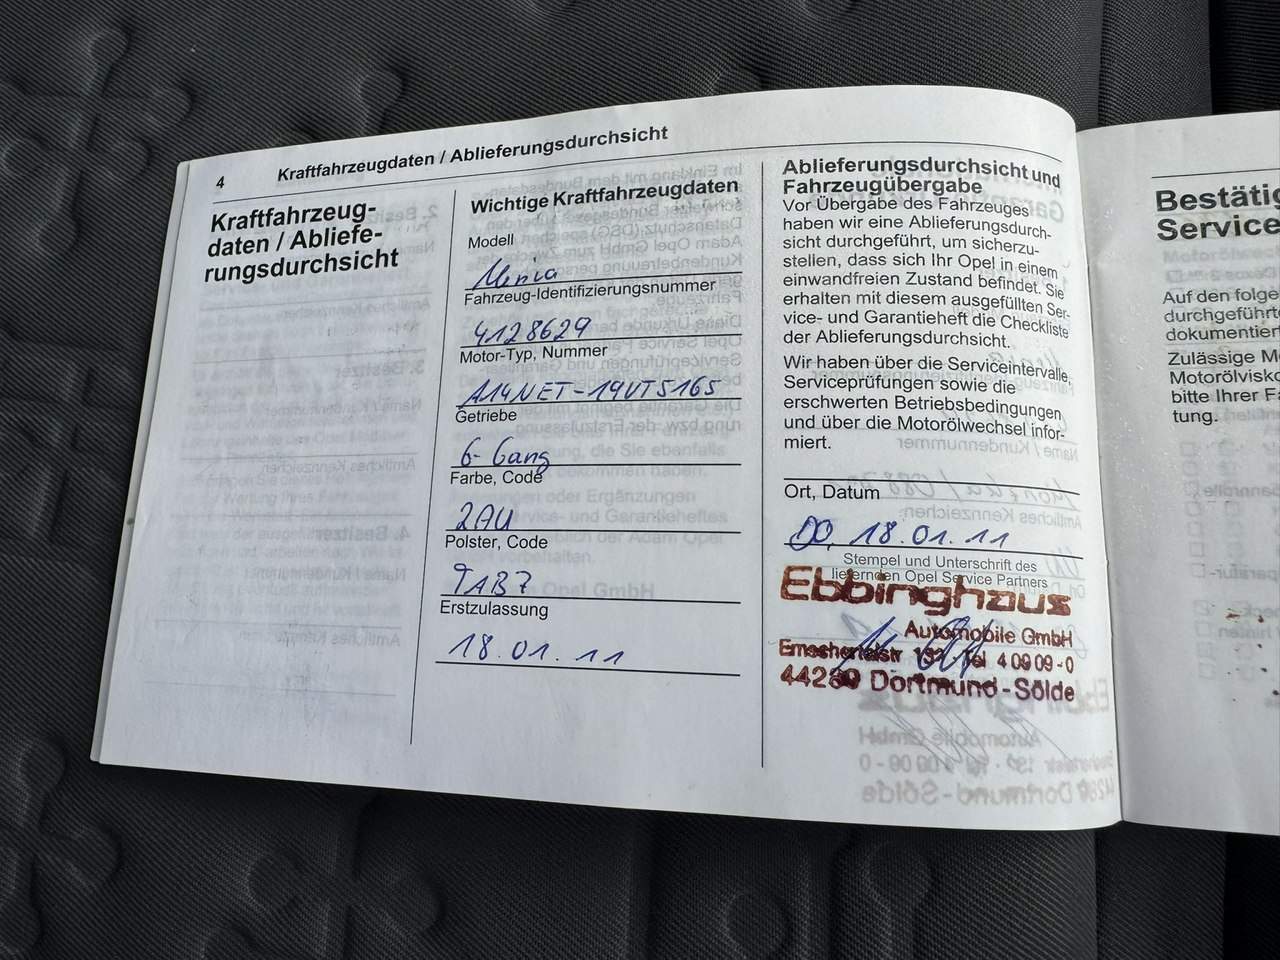 4
Kraftfahrzeugdaten / Ablieferungsdurchsicht
Kraftfahrzeug-
daten / Abliefe-
rungsdurchsicht
Wichtige Kraftfahrzeugdaten
Modell
Meriva
Fahrzeug-Identifizierungsnummer
4128629
Motor-Typ, Nummer
A14NET-19VT5165
Getriebe
6-Gang
Farbe, Code
2AU
Polster, Code
TAB7
Erstzulassung
18.01.11
Ablieferungsdurchsicht und
Fahrzeugübergabe
Vor Übergabe des Fahrzeuges
haben wir eine Ablieferungsdurch-
sicht durchgeführt, um sicherzu-
stellen, dass sich Ihr Opel in einem
einwandfreien Zustand befindet. Sie
erhalten mit diesem ausgefüllten Ser-
vice- und Garantieheft die Checkliste
der Ablieferungsdurchsicht.
Wir haben über die Serviceintervalle,
Serviceprüfungen sowie die
erschwerten Betriebsbedingungen
und über die Motorölwechsel infor-
miert.
Ort, Datum
DO, 18.01.11
Stempel und Unterschrift des
liefernden Opel Service Partners
Ebbinghaus
Automobile GmbH
Tel 4 09 09 - 0
Dortmund - Sölde
Bestätig
Service
Auf den folge
durchgeführte
dokumentier
Zulässige M
Motorölvisko
bitte Ihrer Fa
tung.